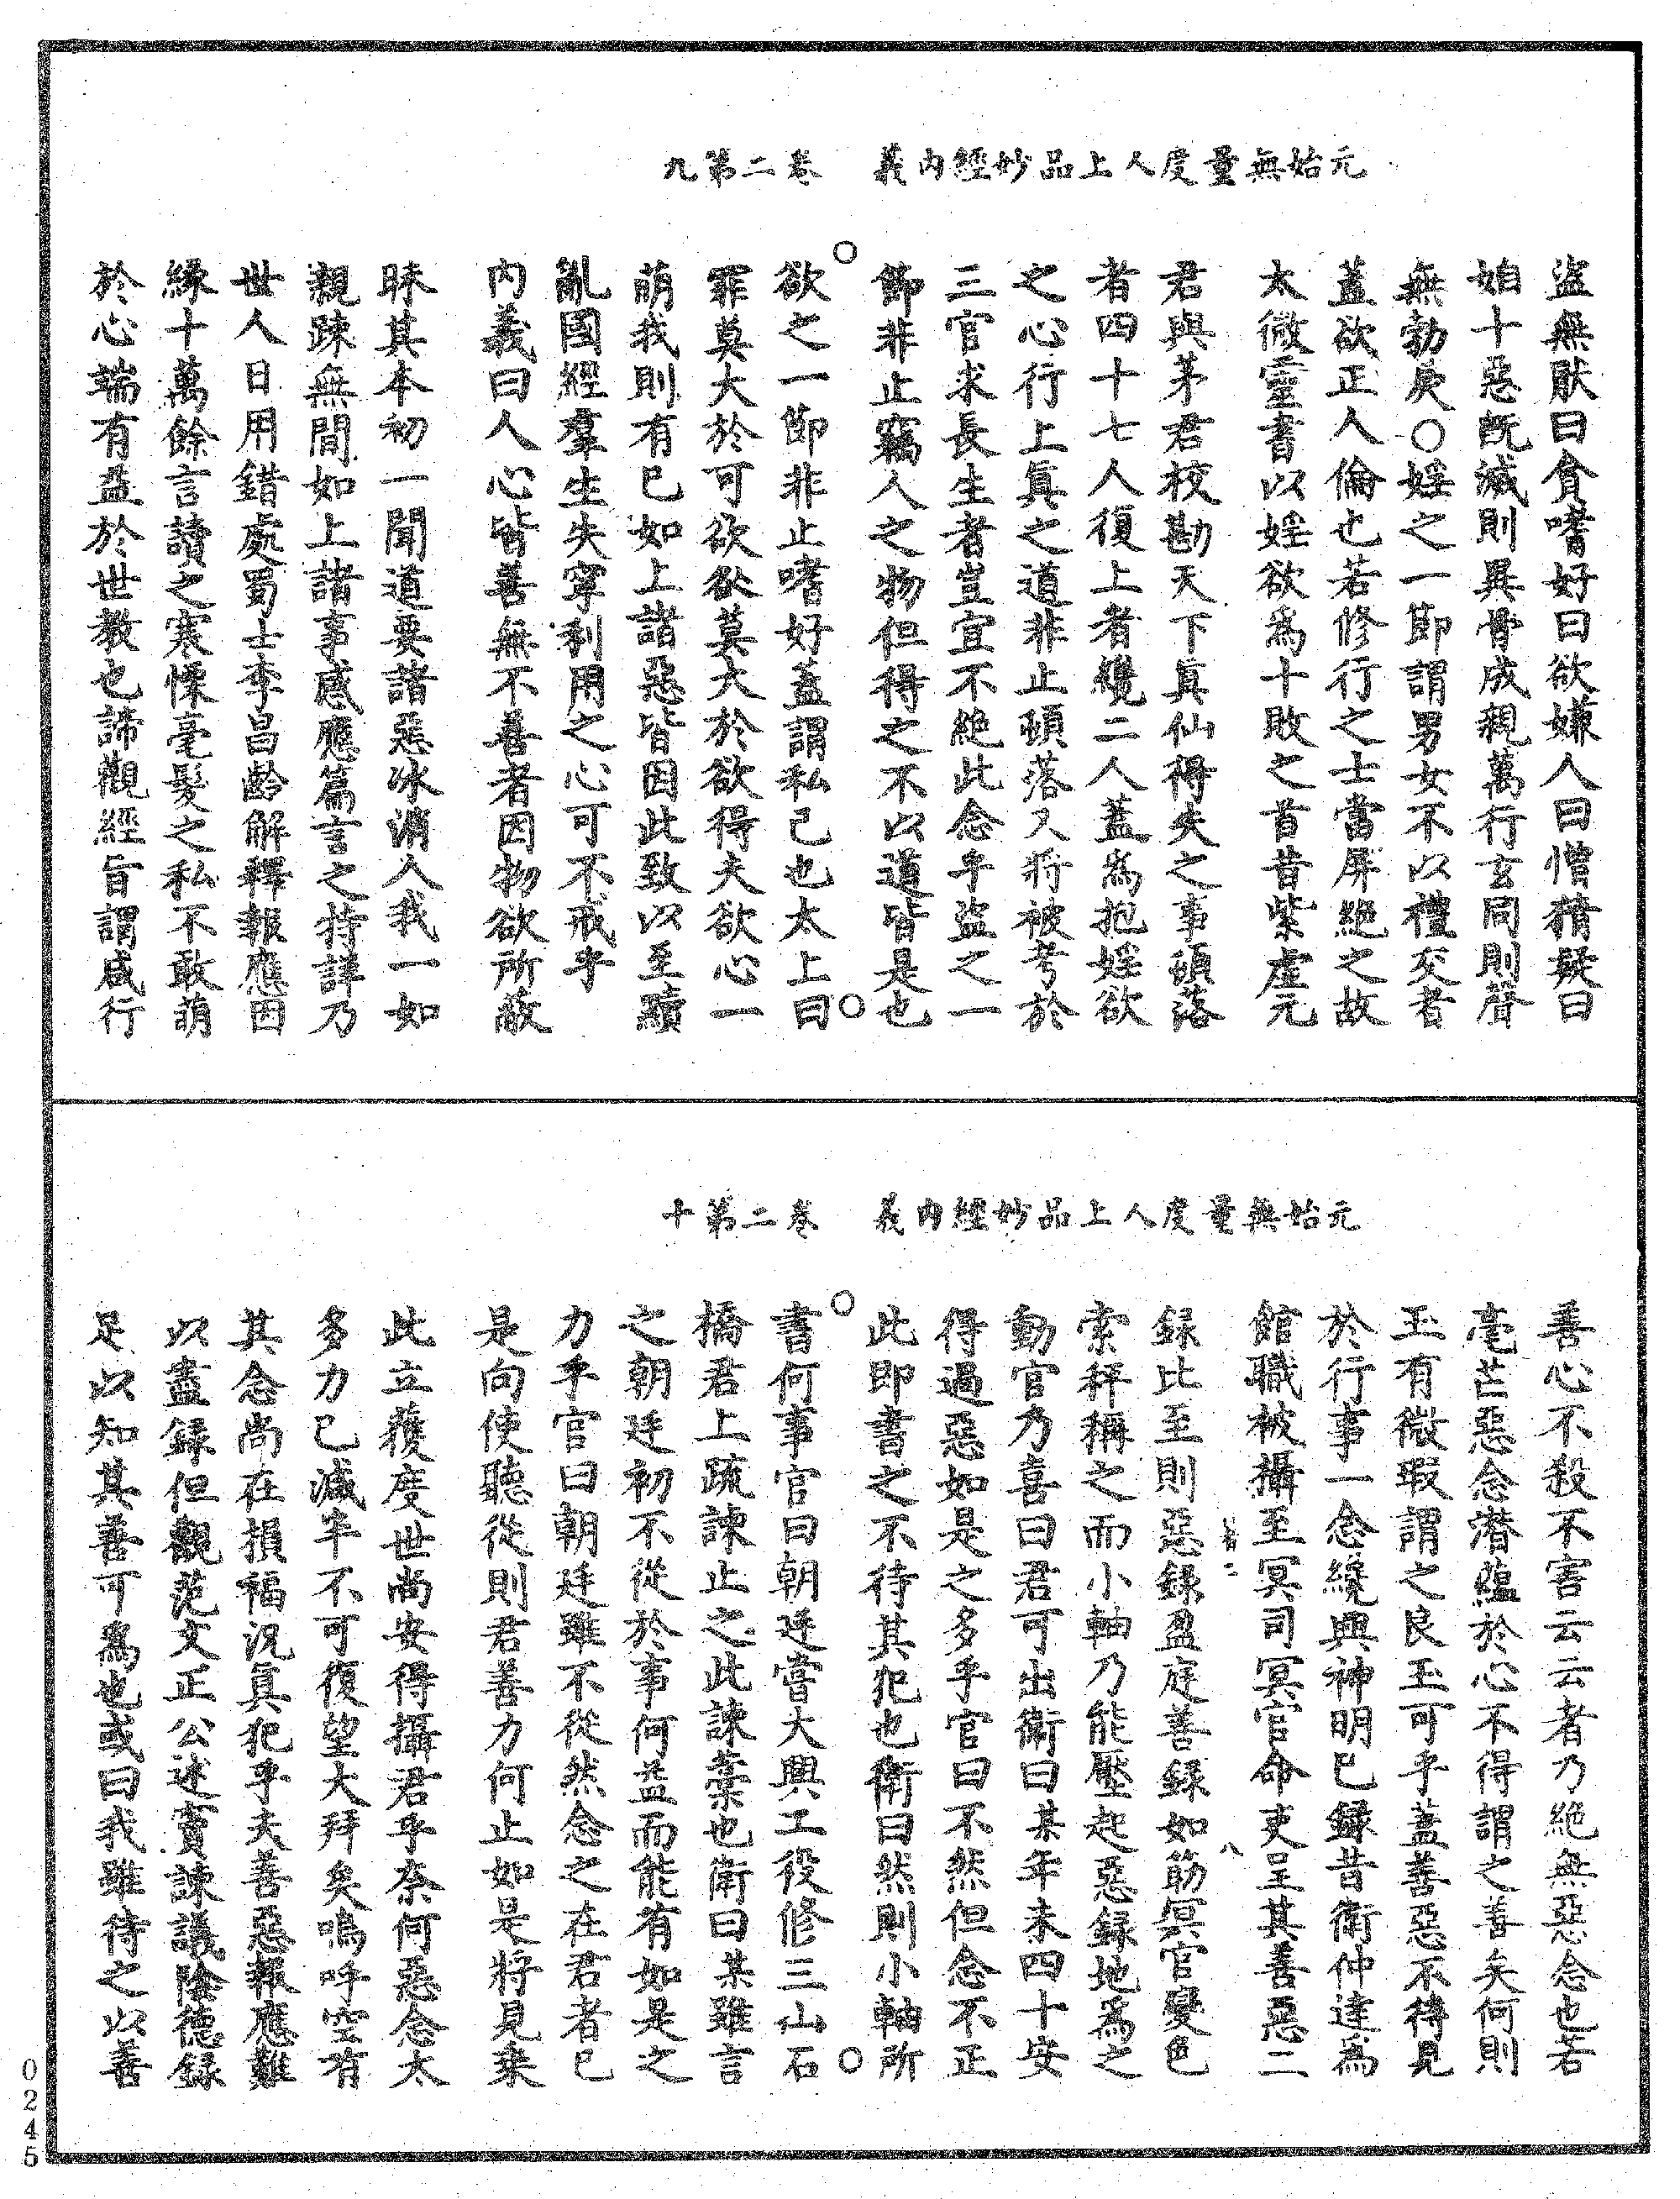 元始無量度人上品妙經內義　卷二第九
盜無猒曰貪嗜好曰欲嫌人曰憎猜疑曰
妬十惡既滅則異骨成親萬行玄同則聲
無勃戾○婬之一節謂男女不以禮交者
蓋欲正人倫也若修行之士當屏絕之故
太微靈書以婬欲為十敗之首昔紫虛元
君與茅君校勘天下真仙得失之事頓落
者四十七人復上者纔二人蓋為抱婬欲
之心行上真之道非止頓落又將被考於
三官求長生者豈宜不絕此念乎盜之一
節非止竊人之物但得之不以道皆是也
欲之一節非止嗜好蓋謂私己也太上曰
罪莫大於可欲欲莫大於欲得夫欲心一
萌我則有已如上諸惡皆因此致以至黷
亂國經羣生失寧利用之心可不戒乎
內義曰人心皆善無不善者因物欲所蔽
昧其本初一聞道要諸惡冰消人我一如
親踈無間如上諸事感應篇言之特詳乃
世人日用錯處蜀士李昌齡解釋報應因
緣十萬餘言讀之寒慄毫髮之私不敢萌
於心端有益於世教也諦觀經旨謂咸行
元始無量度人上品妙經內義　卷二第十
善心不殺不害云云者乃絕無惡念也若
毫芒惡念潛蘊於心不得謂之善矣何則
玉有微瑕謂之良玉可乎蓋善惡不待見
於行事一念纔興神明已錄昔衛仲達為
館職被攝至冥司冥官命吏呈其善惡二
錄比至則惡錄盈庭善錄如筯冥官變色
索秤稱之而小軸乃能壓起惡錄地為之
動官乃喜曰君可出衛曰某年未四十安
得過惡如是之多乎官曰不然但念不正
此即書之不待其犯也衛曰然則小軸所
書何事官曰朝廷嘗大興工役修三山石
橋君上疏諫止之此諫藁也衛曰某雖言
之朝廷初不從於事何益而能有如是之
力乎官曰朝廷雖不從然念之在君者已
是向使聽從則君善力何止如是將見乘
此立獲度世尚安得攝君乎奈何惡念太
多力已減半不可復望大拜矣嗚呼空有
其念尚在損福況真犯乎夫善惡報應難
以盡錄但觀范文正公述竇諫議陰德錄
足以知其善可為也或曰我雖待之以善
八
0245